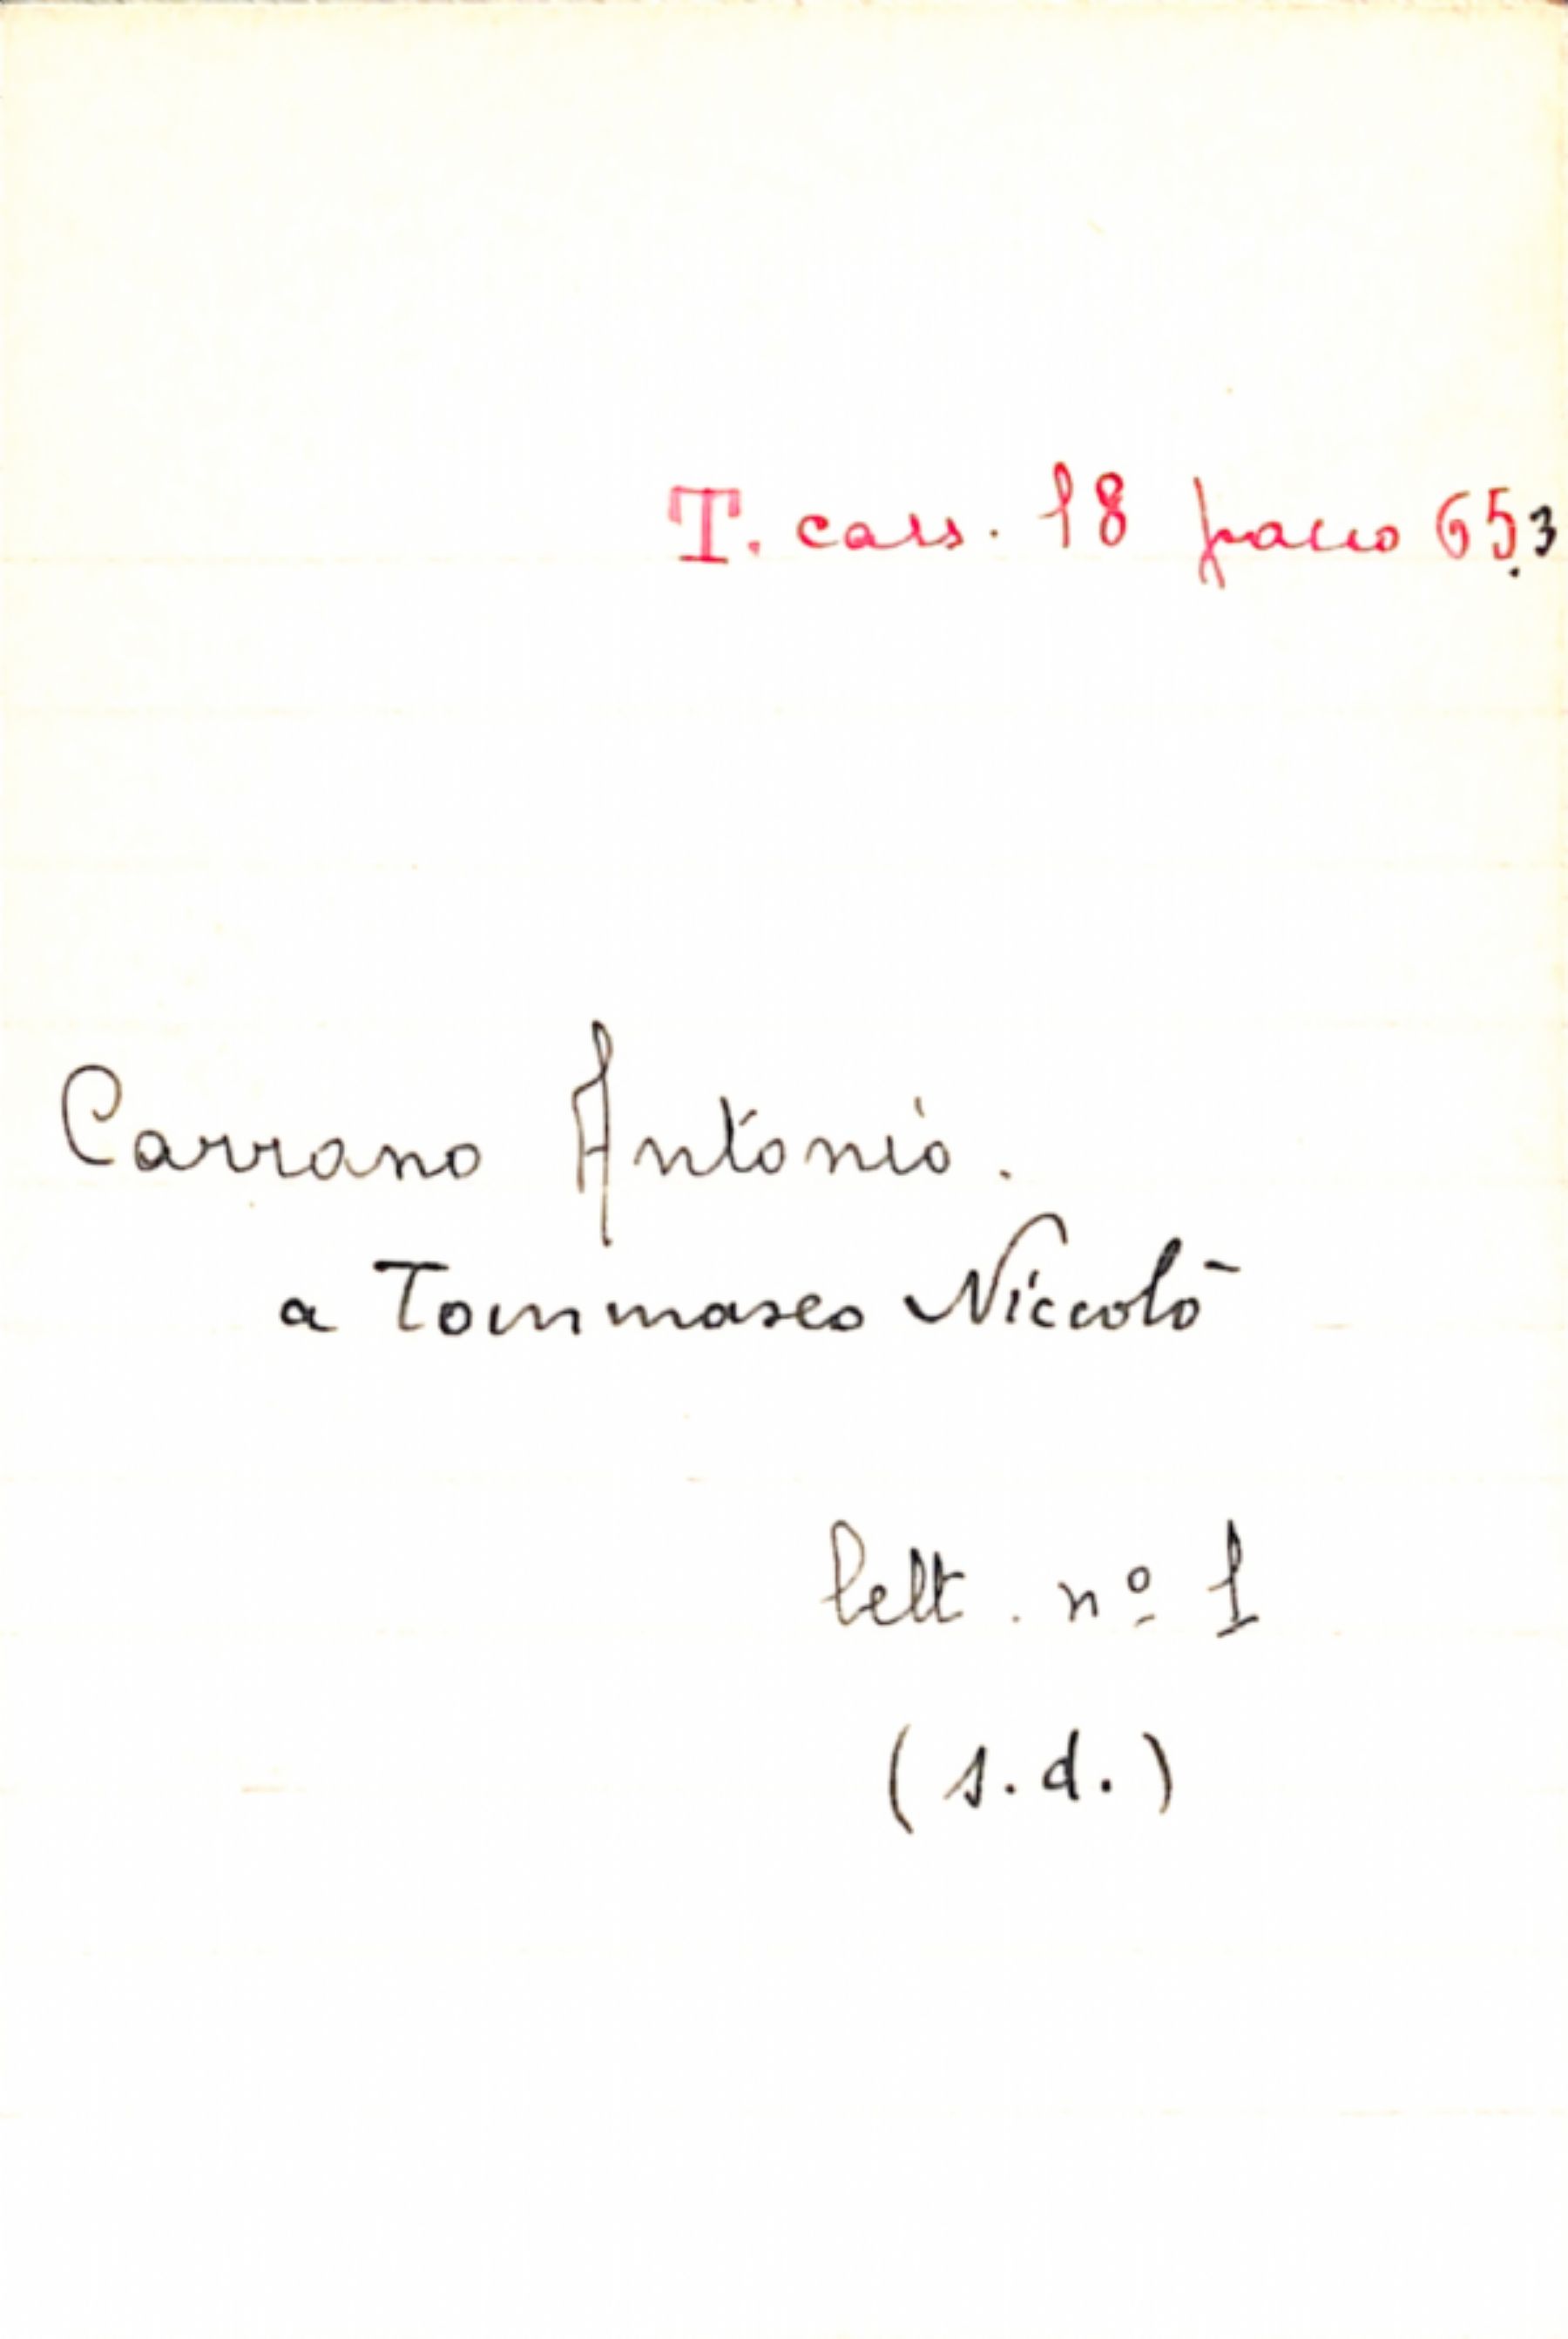 T. cass. 18 pacco 65.3
Carrano Antonio.
a Tommaseo Niccolò
lett. nº 1
(s.d.)